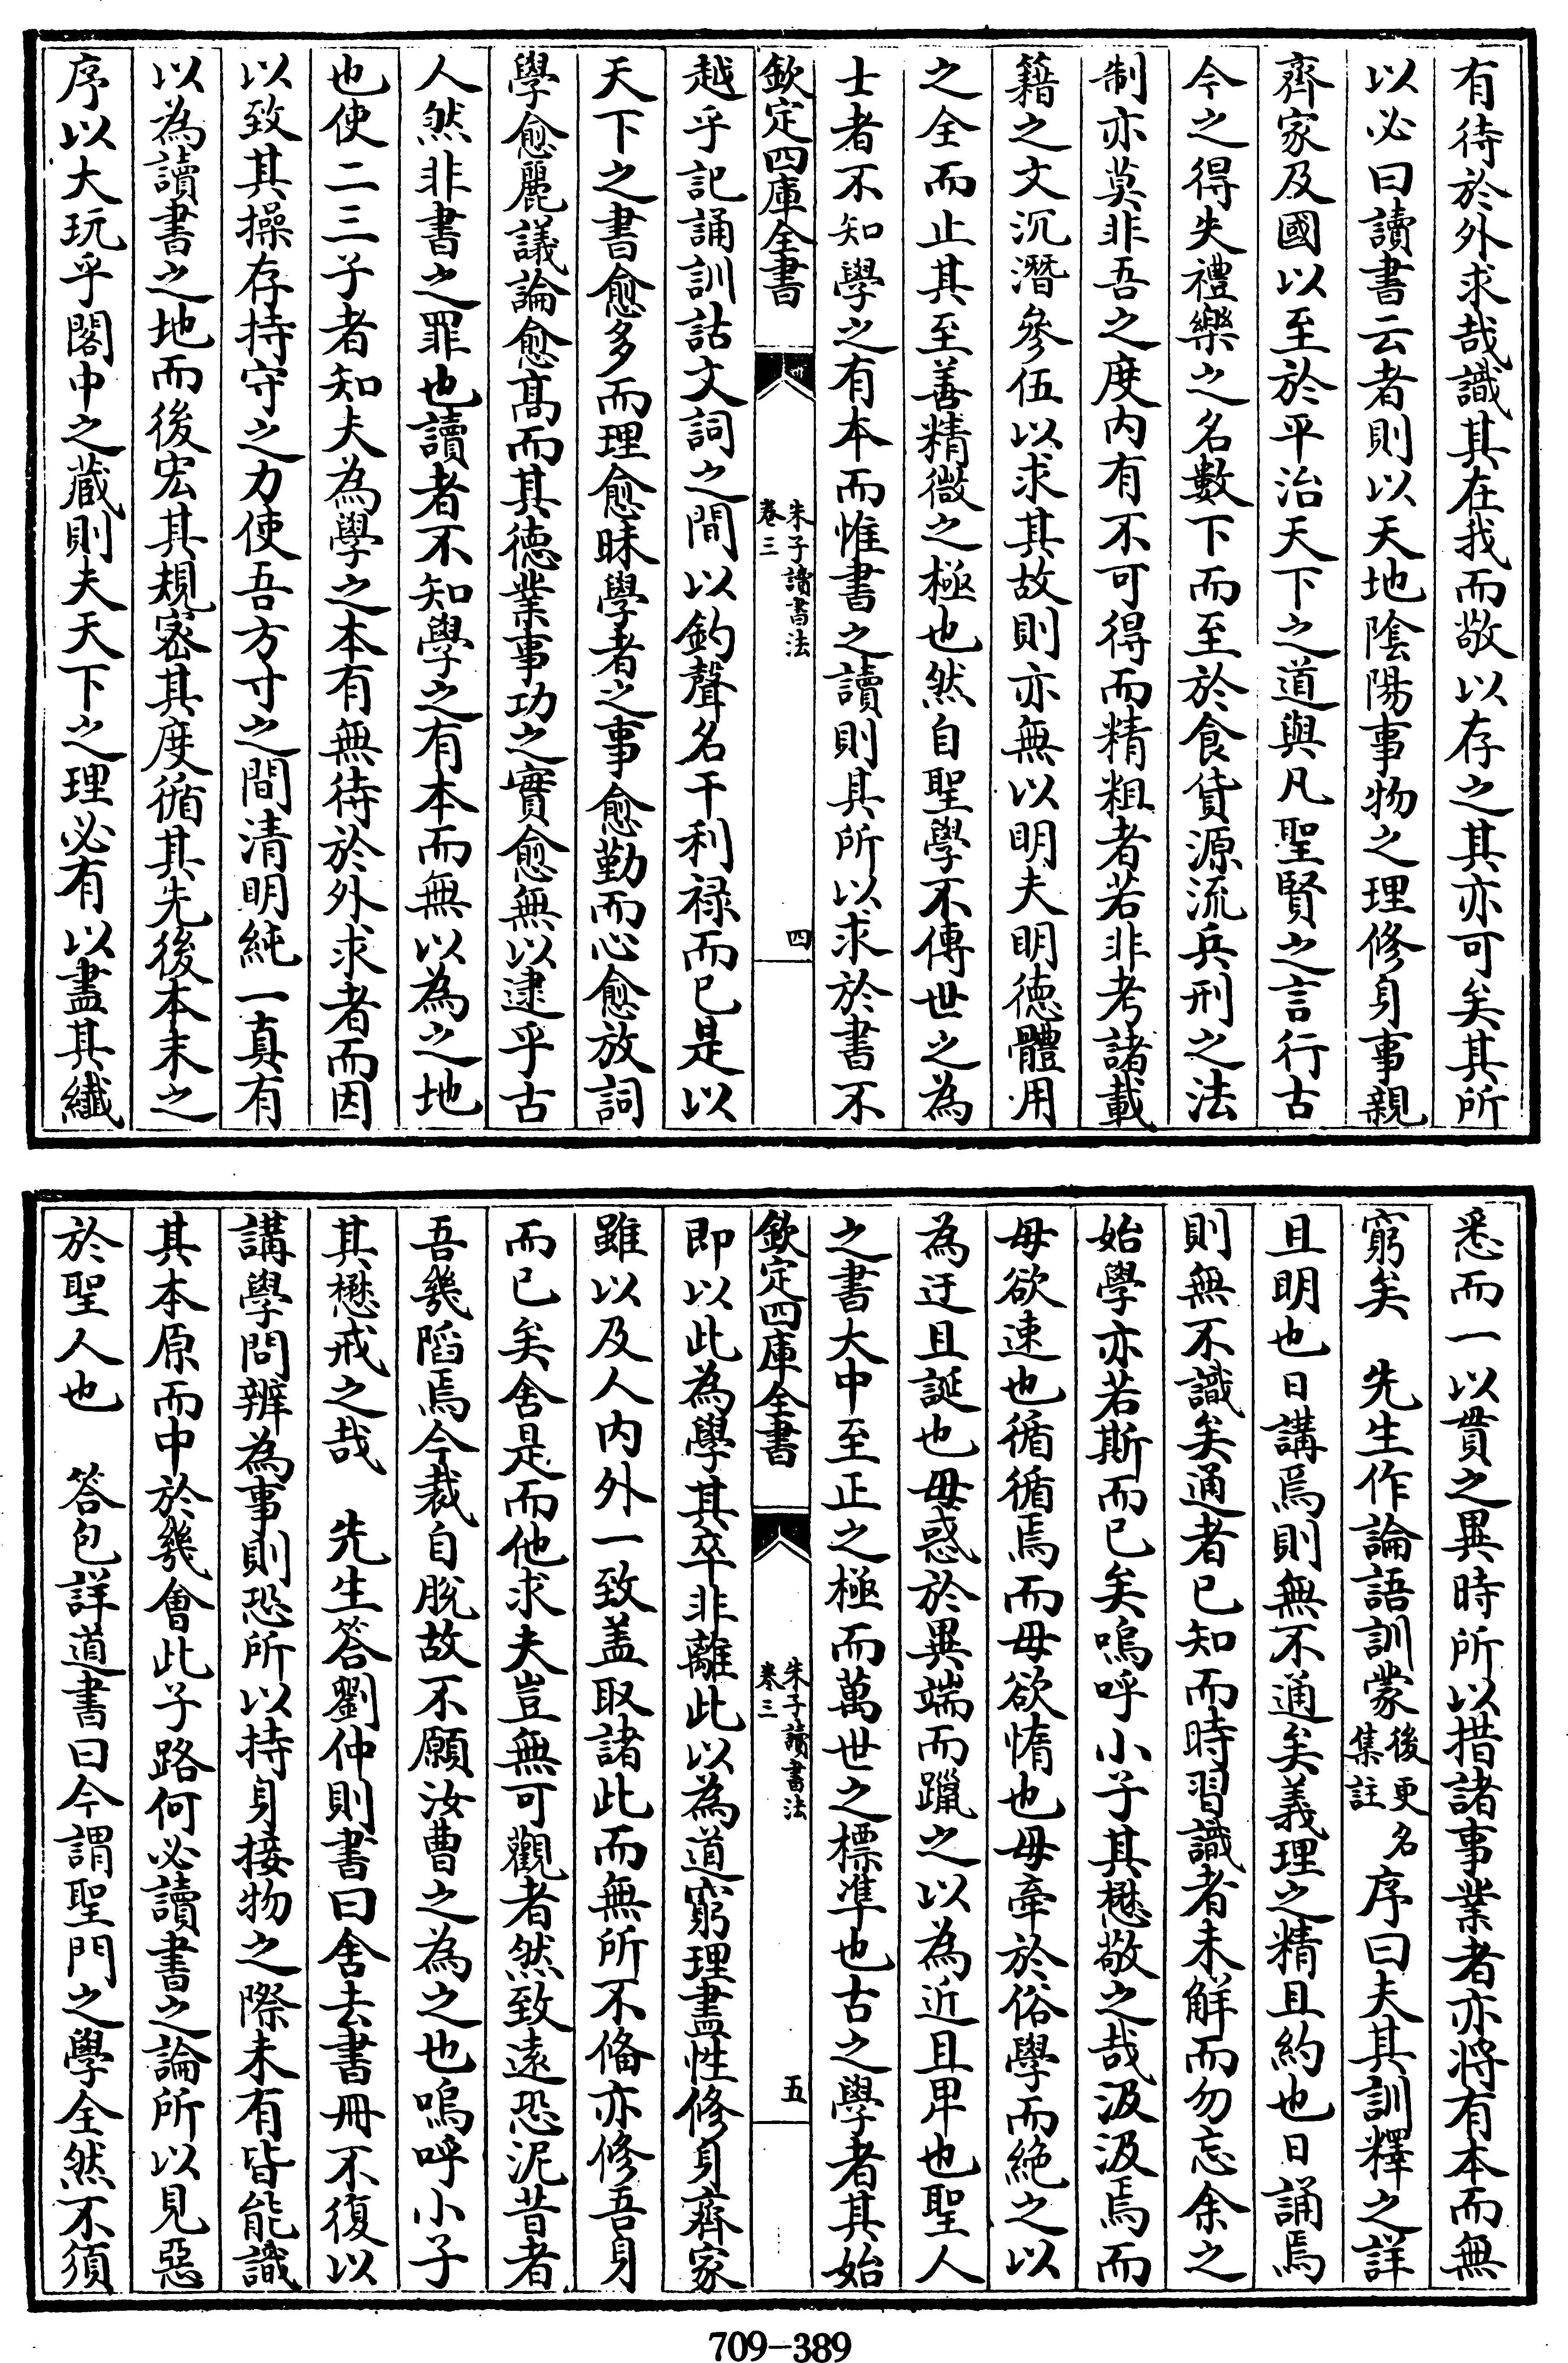 有待於外求哉識其在我而敬以存之其亦可矣其所
以必曰讀書云者則以天地陰陽事物之理修身事親
齊家及國以至於平治天下之道與凡聖賢之言行古
今之得失禮樂之名數下而至於食貨源流兵刑之法
制亦莫非吾之度內有不可得而精粗者若非考諸載
籍之文沉潛參伍以求其故則亦無以明夫明德體用
之全而止其至善精微之極也然自聖學不傳世之為
士者不知學之有本而惟書之讀則其所以求於書不
欽定四庫全書
朱子讀書法
卷三
四
越乎記誦訓詁文詞之間以釣聲名干利祿而已是以
天下之書愈多而理愈昧學者之事愈勤而心愈放詞
學愈麗議論愈髙而其德業事功之實愈無以逮乎古
人然非書之罪也讀者不知學之有本而無以為之地
也使二三子者知夫為學之本有無待於外求者而因
以致其操存持守之力使吾方寸之間清明純一真有
以為讀書之地而後宏其規密其度循其先後本末之
序以大玩乎閣中之藏則夫天下之理必有以盡其纖
悉而一以貫之異時所以措諸事業者亦將有本而無
窮矣　先生作論語訓蒙後更名集註序曰夫其訓釋之詳
且明也日講焉則無不通矣義理之精且約也日誦焉
則無不識矣通者已知而時習識者未解而勿忘余之
始學亦若斯而已矣嗚呼小子其懋敬之哉汲汲焉而
毋欲速也循循焉而毋欲惰也毋牽於俗學而絶之以
為迂且誕也毋惑於異端而躐之以為近且卑也聖人
之書大中至正之極而萬世之標準也古之學者其始
欽定四庫全書
朱子讀書法
卷三
五
即以此為學其卒非離此以為道窮理盡性修身齊家
雖以及人內外一致盖取諸此而無所不備亦修吾身
而已矣舍是而他求夫豈無可觀者然致遠恐泥昔者
吾幾陷焉今裁自脫故不願汝曹之為之也嗚呼小子
其懋戒之哉　先生答劉仲則書曰舍去書冊不復以
講學問辨為事則恐所以持身接物之際未有皆能識
其本原而中於幾會此子路何必讀書之論所以見惡
於聖人也　答包詳道書曰今謂聖門之學全然不須
709-389